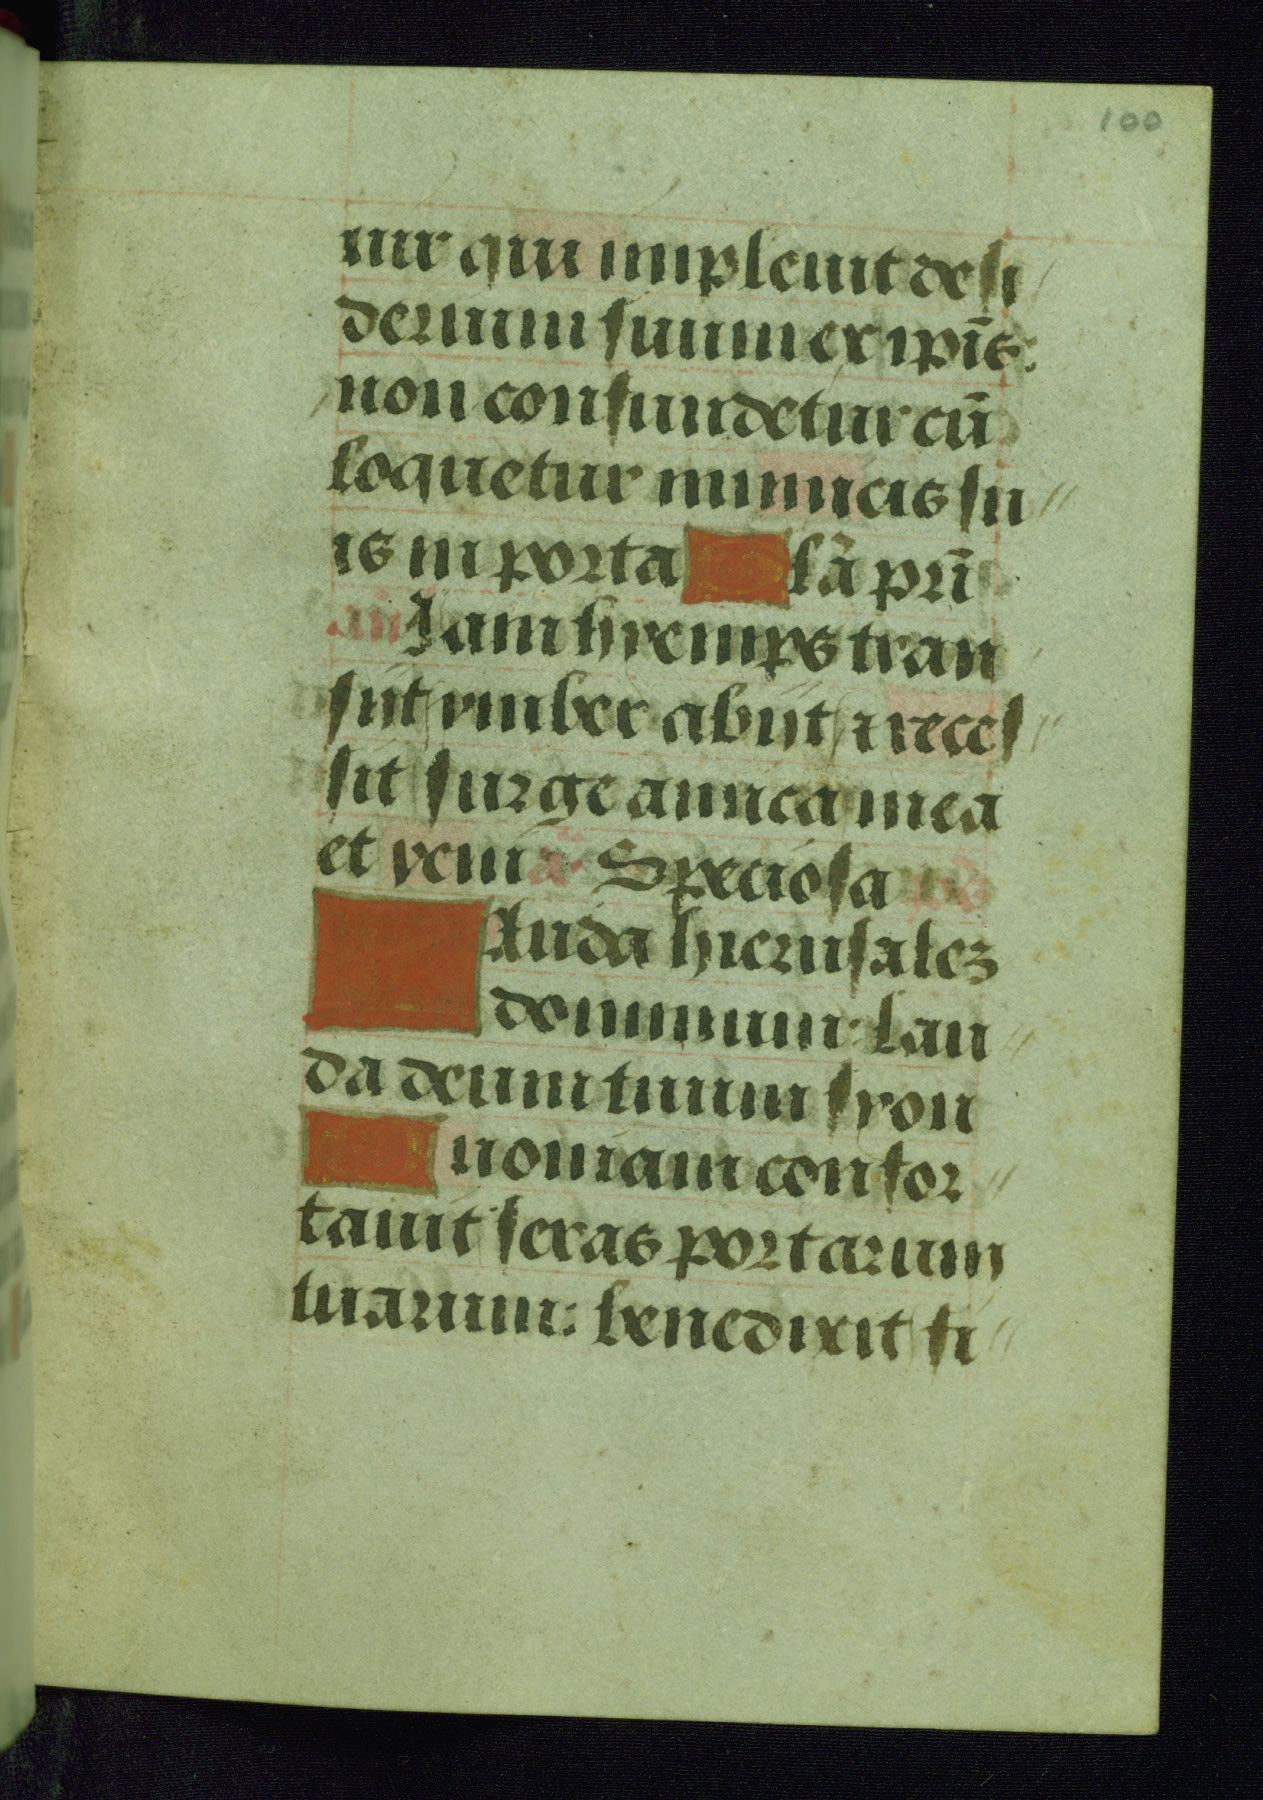 100
uir qui impleuit desi
derium suum ex ip̄is:
non confundetur cū
loquetur inimicis su
is in porta lā prī
añ Jam hyemps tran
siit ymber abiit ⁊ reces
sit surge amica mea
et veni ā Speciosa ps
Auda hierusalez
dominum: lau
da deum tuum syon
uoniam confor
tauit seras portarum
tuarum: benedixit fi